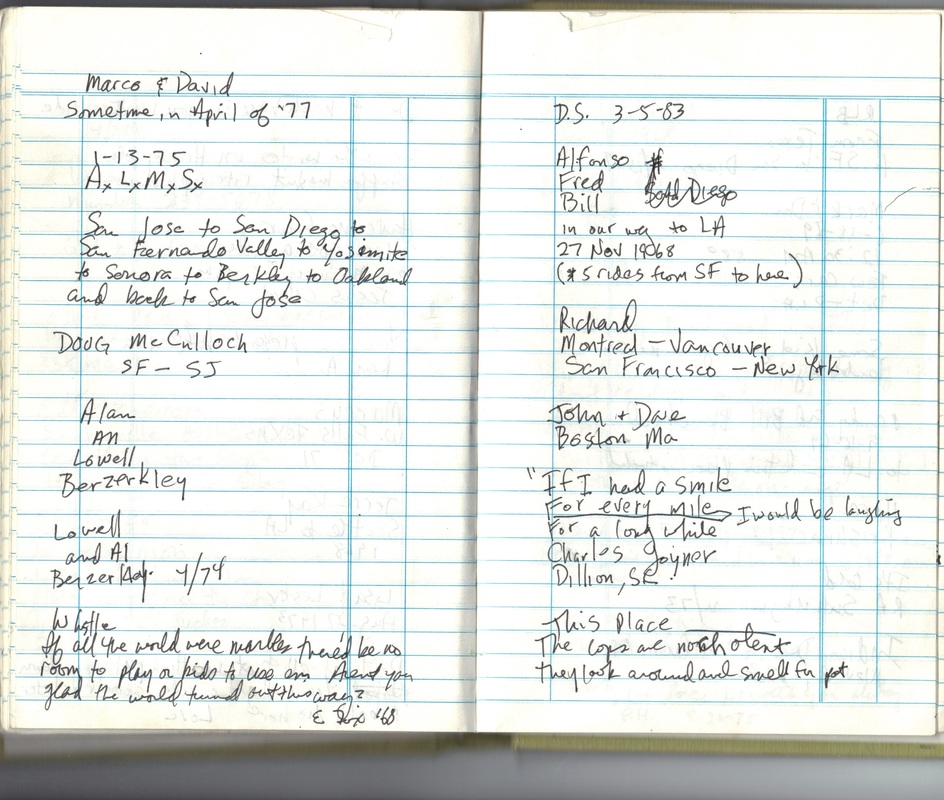 Marco & David
Sometime in April of '77
1-13-75
A x L x M x S x
San Jose to San Diego to
San Fernando Valley to Yosimite
to Sonora to Berkley to Oakland
and back to San Jose
DOUG McCulloch
SF - SJ
Alan
An
Lowell
Berzerkley
Lowell
and Al
4/74
Whistle
If all the world were marbles there'd be no
room to play or kids to use em Arent you
glad the world turned out this way?
'68
D.S. 3-5-83
Alfonso
Fred
Bill
in our way to LA
27 Nov 1968
(* 5 rides from SF to here)
Richard
Montreal - Vancouver
San Francisco - New York
John + Dave
Boston Ma
"If I had a smile
For every mile I would be laughing
For a long while
Charles Joyner
Dillion, SC
This Place
The cops are
they look around and smell for pot